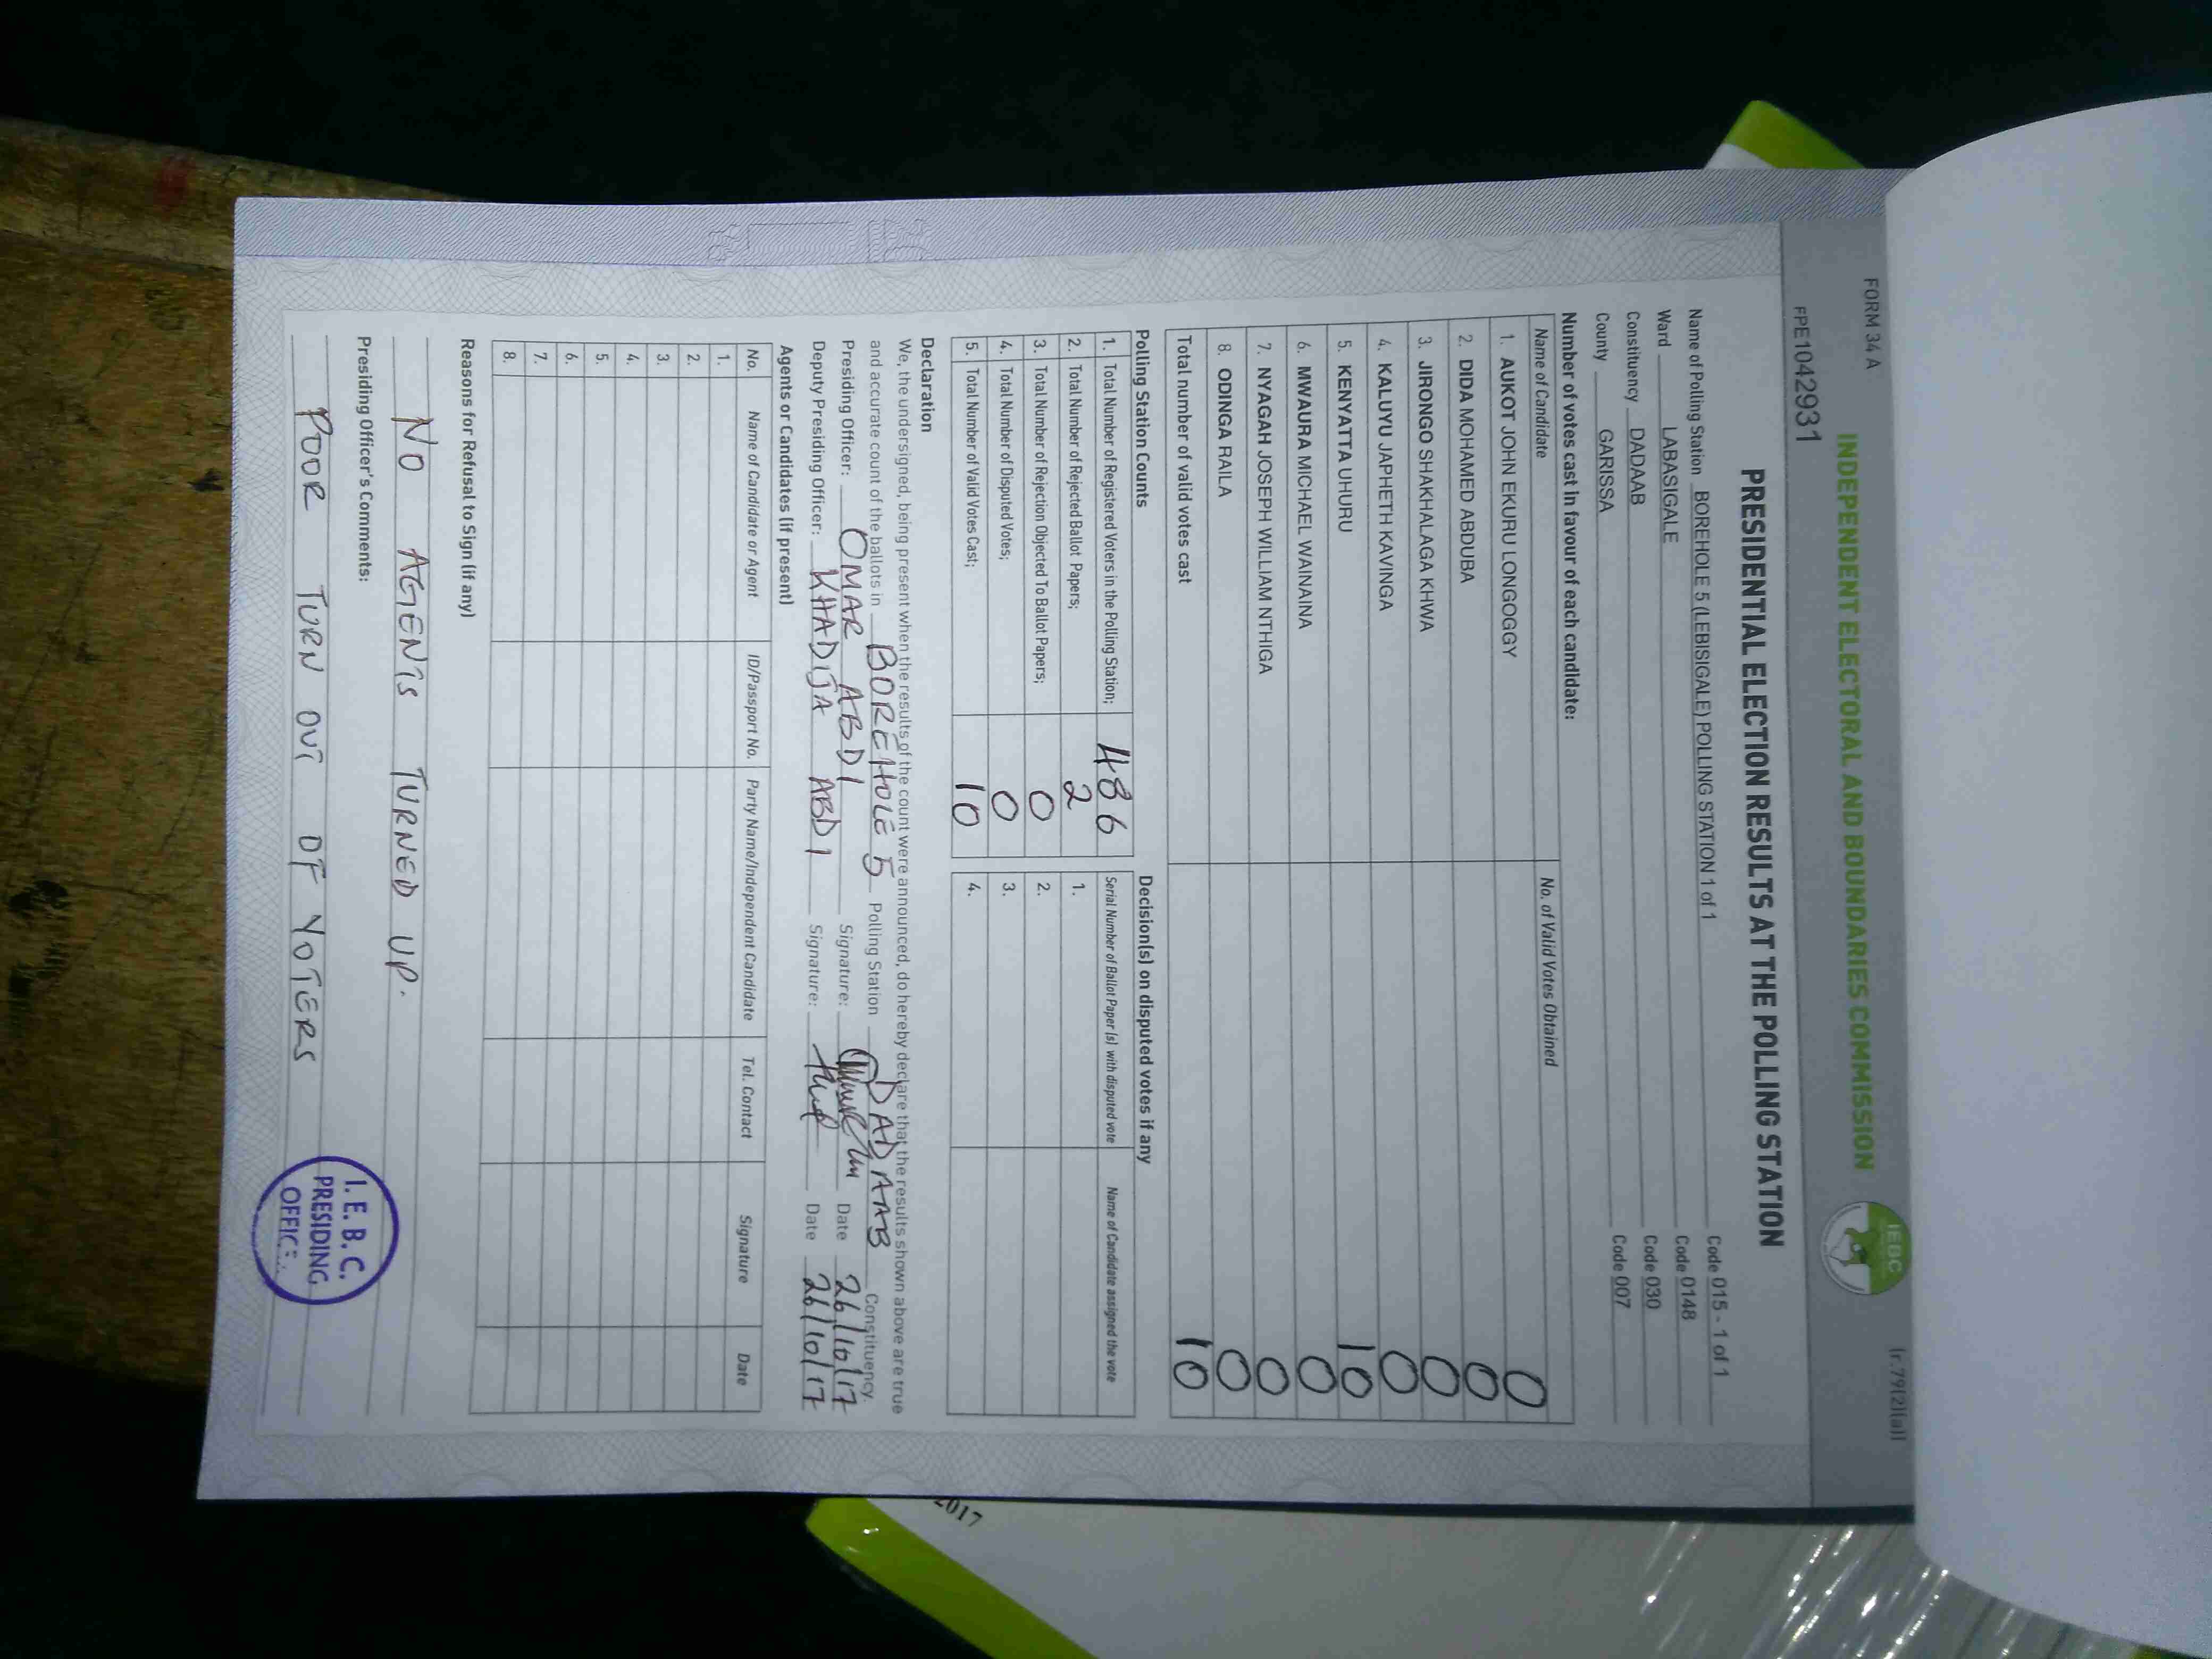 FORM 34 A
(r.79(2)(a))
INDEPENDENT ELECTORAL AND BOUNDARIES COMMISSION
IEBC
FPE1042931
PRESIDENTIAL ELECTION RESULTS AT THE POLLING STATION
Name of Polling Station BOREHOLE 5 (LEBISIGALE) POLLING STATION 1 of 1 Code 015 - 1 of 1
Ward LABASIGALE Code 0148
Constituency DADAAB Code 030
County GARISSA Code 007
Number of votes cast in favour of each candidate:
Name of Candidate No. of Valid Votes Obtained
1. AUKOT JOHN EKURU LONGOGGY 0
2. DIDA MOHAMED ABDUBA 0
3. JIRONGO SHAKHALAGA KHWA 0
4. KALUYU JAPHETH KAVINGA 0
5. KENYATTA UHURU 10
6. MWAURA MICHAEL WAINAINA 0
7. NYAGAH JOSEPH WILLIAM NTHIGA 0
8. ODINGA RAILA 0
Total number of valid votes cast 10
Polling Station Counts
1. Total Number of Registered Voters in the Polling Station; 486
2. Total Number of Rejected Ballot Papers; 2
3. Total Number of Rejection Objected To Ballot Papers; 0
4. Total Number of Disputed Votes; 0
5. Total Number of Valid Votes Cast; 10
Decision(s) on disputed votes if any
Serial Number of Ballot Paper (s) with disputed vote Name of Candidate assigned the vote
1.
2.
3.
4.
Declaration
We, the undersigned, being present when the results of the count were announced, do hereby declare that the results shown above are true
and accurate count of the ballots in BOREHOLE 5 Polling Station DADAAB Constituency.
Presiding Officer: OMAR ABDI Signature: Date 26/10/17
Deputy Presiding Officer: KHADIJA ABDI Signature: Date 26/10/17
Agents or Candidates (if present)
No. Name of Candidate or Agent ID/Passport No. Party Name/Independent Candidate Tel. Contact Signature Date
1.
2.
3.
4.
5.
6.
7.
8.
Reasons for Refusal to Sign (if any)
NO AGENTS TURNED UP.
Presiding Officer's Comments:
POOR TURN OUT OF VOTERS
I. E. B. C.
PRESIDING
OFFICE
2017